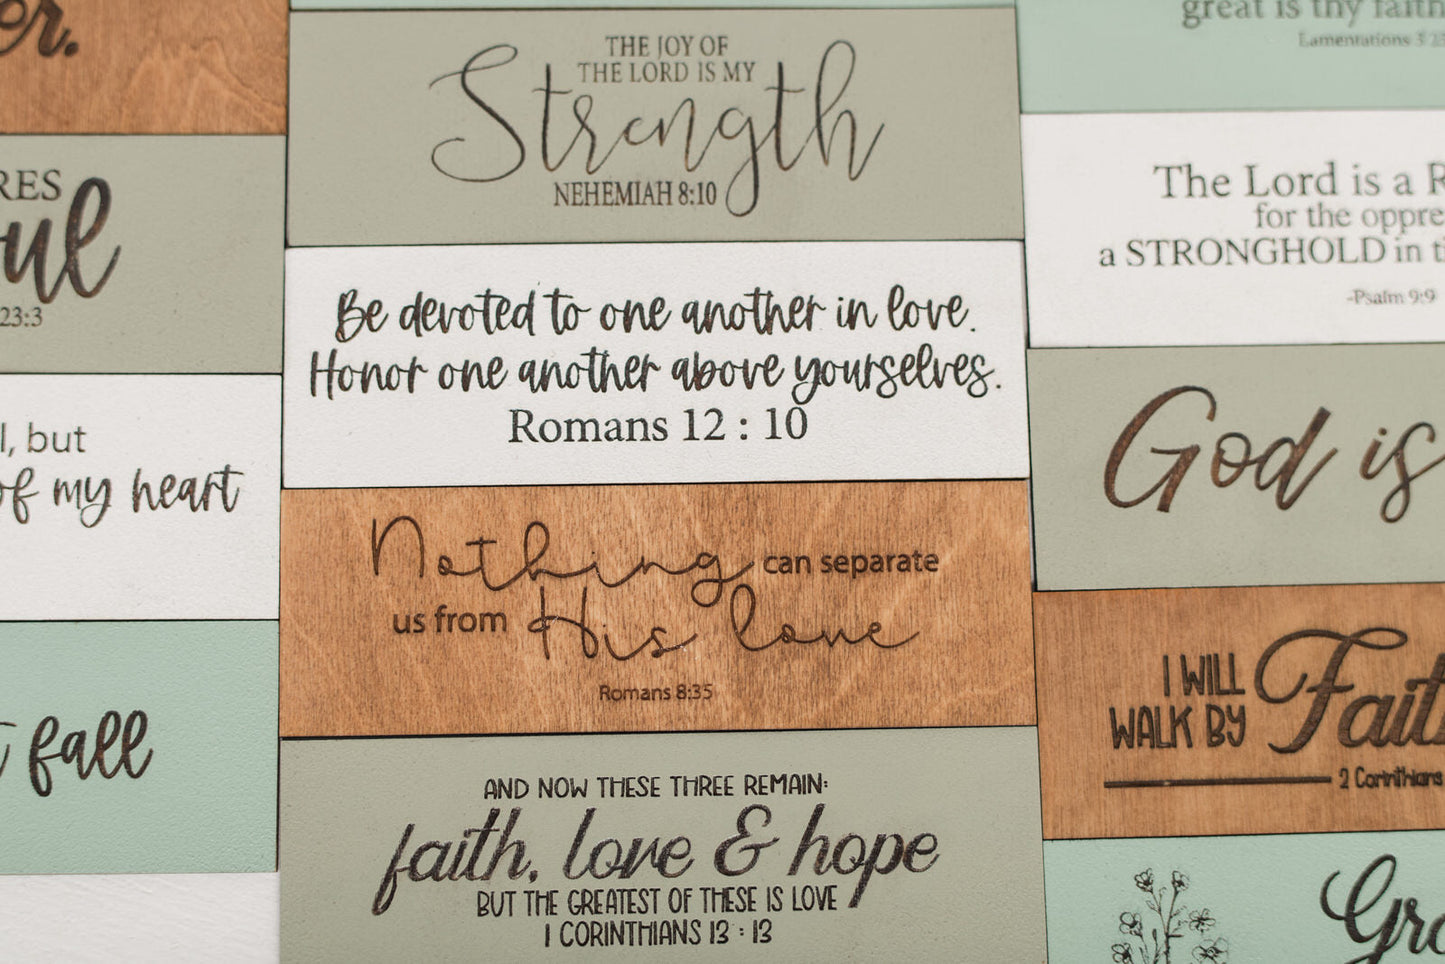 er.
RES
oul
23:3
l, but
of my heart
t fall
THE JOY OF
THE LORD IS MY
Strength
NEHEMIAH 8:10
Be devoted to one another in love.
Honor one another above yourselves.
Romans 12 : 10
Nothing can separate
us from His love
Romans 8:35
AND NOW THESE THREE REMAIN:
faith, love & hope
BUT THE GREATEST OF THESE IS LOVE
1 CORINTHIANS 13 : 13
great is thy faith
Lamentations 3:23
The Lord is a R
for the oppre
a STRONGHOLD in t
-Psalm 9:9
God is
I WILL
WALK BY Fait
2 Corinthians
Gra